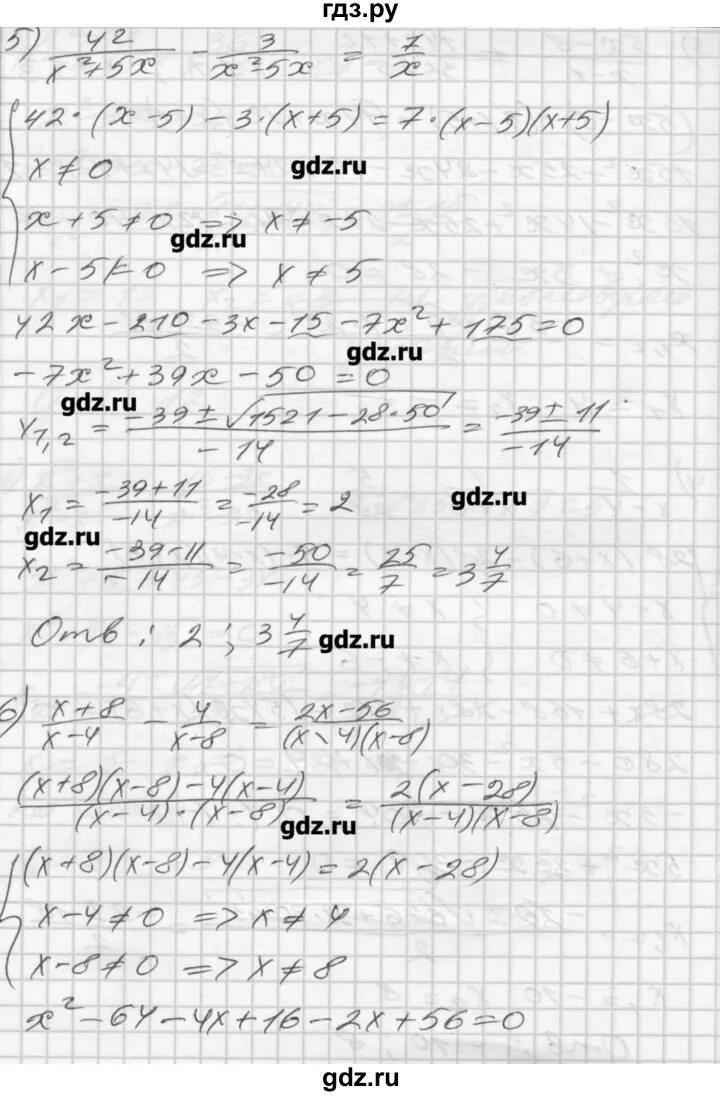 гдз.ру
5) 42/(x²+5x) - 3/(x²-5x) = 7/x
42·(x-5)-3·(x+5)=7·(x-5)(x+5)
x≠0
gdz.ru
x+5≠0 => x≠-5
gdz.ru
x-5≠0 => x≠5
42x-210-3x-15-7x²+175=0
gdz.ru
-7x²+39x-50=0
gdz.ru
x1,2 = (-39±√(1521-28·50))/(-14) = (-39±11)/(-14)
x1 = (-39+11)/(-14) = (-28)/(-14) = 2
gdz.ru
gdz.ru
x2 = (-39-11)/(-14) = (-50)/(-14) = 25/7 = 3 4/7
Отв: 2; 3 4/7
gdz.ru
6) (x+8)/(x-4) - 4/(x-8) = (2x-56)/((x-4)(x-8))
((x+8)(x-8)-4(x-4))/((x-4)·(x-8)) = (2(x-28))/((x-4)(x-8))
gdz.ru
(x+8)(x-8)-4(x-4)=2(x-28)
x-4≠0 => x≠4
x-8≠0 => x≠8
gdz.ru
x²-64-4x+16-2x+56=0
gdz.ru